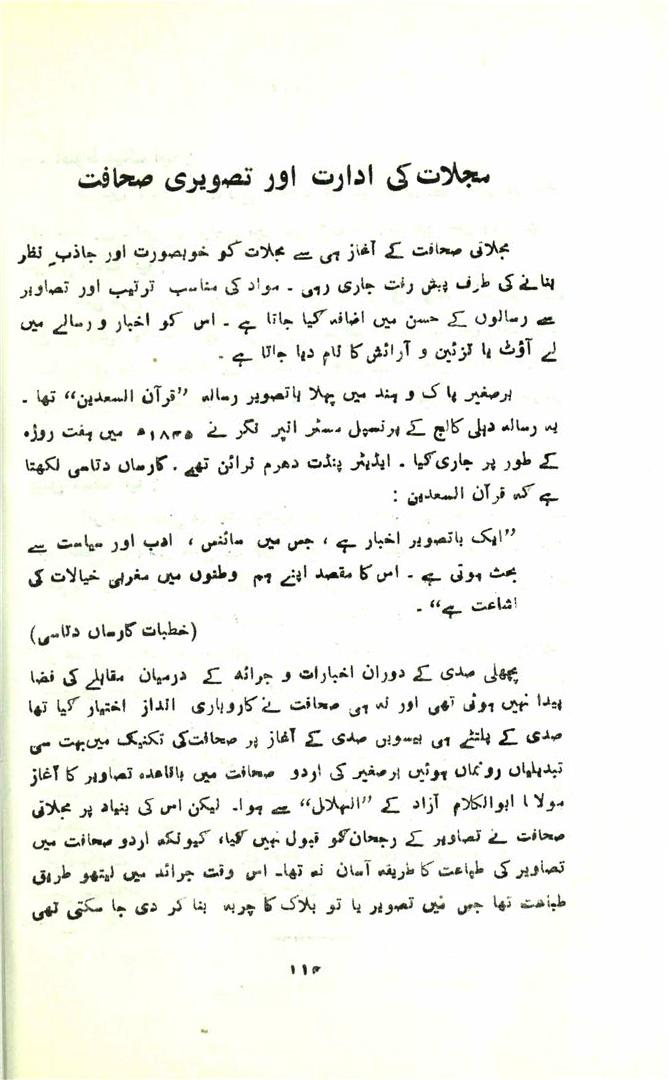 مجلات کی ادارت اور تصویری صحافت
مجلاتی صحافت کے آغاز ہی سے مجلات کو خوبصورت اور جاذبِ نظر
بنانے کی طرف پیش رفت جاری رہی ۔ مواد کی مناسب ترتیب اور تصاویر
سے رسالوں کے حسن میں اضافہ کیا جاتا ہے ۔ اس کو اخبار و رسالے میں
لے آؤٹ یا تزئین و آرائش کا نام دیا جاتا ہے ۔
برصغیر پاک و ہند میں پہلا باتصویر رسالہ ”قرآن السعدین“ تھا ۔
یہ رسالہ دہلی کالج کے پرنسپل مسٹر اسپر نگر نے ۱۸۴۵ء میں ہفت روزہ
کے طور پر جاری کیا ۔ ایڈیٹر پنڈت دھرم نرائن تھے ۔ گارساں دتاسی لکھتا
ہے کہ قرآن السعدین :
”ایک باتصویر اخبار ہے ، جس میں سائنس ، ادب اور سیاست سے
بحث ہوتی ہے ۔ اس کا مقصد اپنے ہم وطنوں میں مغربی خیالات کی
اشاعت ہے“ ۔
(خطبات گارساں دتاسی)
پچھلی صدی کے دوران اخبارات و جرائد کے درمیان مقابلے کی فضا
پیدا نہیں ہوئی تھی اور نہ ہی صحافت نے کاروباری انداز اختیار کیا تھا
صدی کے پلٹتے ہی بیسویں صدی کے آغاز پر صحافت کی تکنیک میں بہت سی
تبدیلیاں رونماں ہوئیں برصغیر کی اردو صحافت میں باقاعدہ تصاویر کا آغاز
مولانا ابوالکلام آزاد کے ”الہلال“ سے ہوا۔ لیکن اس کی بنیاد پر مجلاتی
صحافت نے تصاویر کے رجحان کو قبول نہیں کیا، کیونکہ اردو صحافت میں
تصاویر کی طباعت کا طریقہ آسان نہ تھا۔ اس وقت جرائد میں لیتھو طریق
طباعت تھا جس میں تصویر یا تو بلاک کا چربہ بنا کر دی جا سکتی تھی
۱۱۴